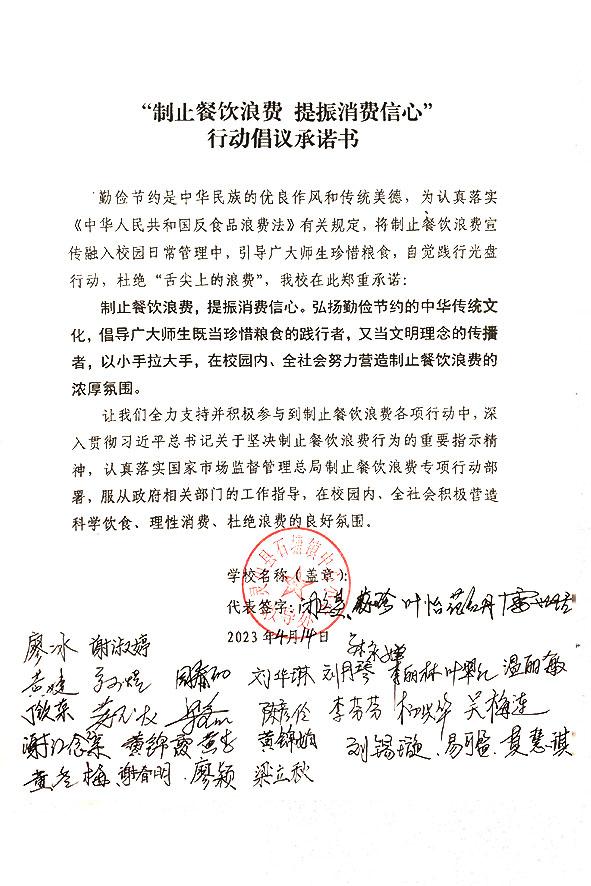 “制止餐饮浪费 提振消费信心”
行动倡议承诺书
勤俭节约是中华民族的优良作风和传统美德，为认真落实
《中华人民共和国反食品浪费法》有关规定，将制止餐饮浪费宣
传融入校园日常管理中，引导广大师生珍惜粮食，自觉践行光盘
行动，杜绝“舌尖上的浪费”，我校在此郑重承诺：
制止餐饮浪费，提振消费信心。弘扬勤俭节约的中华传统文
化，倡导广大师生既当珍惜粮食的践行者，又当文明理念的传播
者，以小手拉大手，在校园内、全社会努力营造制止餐饮浪费的
浓厚氛围。
让我们全力支持并积极参与到制止餐饮浪费各项行动中，深
入贯彻习近平总书记关于坚决制止餐饮浪费行为的重要指示精
神，认真落实国家市场监督管理总局制止餐饮浪费专项行动部
署，服从政府相关部门的工作指导，在校园内、全社会积极营造
科学饮食、理性消费、杜绝浪费的良好氛围。
学校名称（盖章）：
石塘镇中
代表签字： 叶怡
2023年4月14日
廖冰 谢淑婷
刘华琳 刘月琴 李丽林 叶翠红 温丽敏
陈彦伶 李芬芬 吴梅连
黄锦霞 黄锦灿 刘锡璇 莫慧琪
黄冬梅 谢春明 廖颖 梁立秋